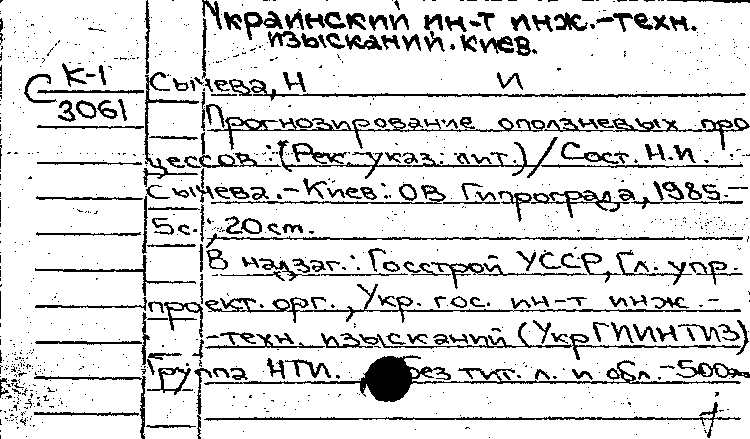 Украинский ин-т инж.-техн.
изысканий. Киев.
К-1
3061
Сычева, Н И
Прогнозирование оползневых про
цессов : (Рек. указ. лит.) / Сост. Н.И.
Сычева. - Киев : ОВ Гипрограда, 1985. -
5 с. ; 20 см.
В надзаг.: Госстрой УССР, Гл. упр.
проект. орг., Укр. гос. ин-т инж. -
-техн. изысканий (УкрГИИНТИЗ)
Группа НТИ. Без тит. л. и обл. - 500